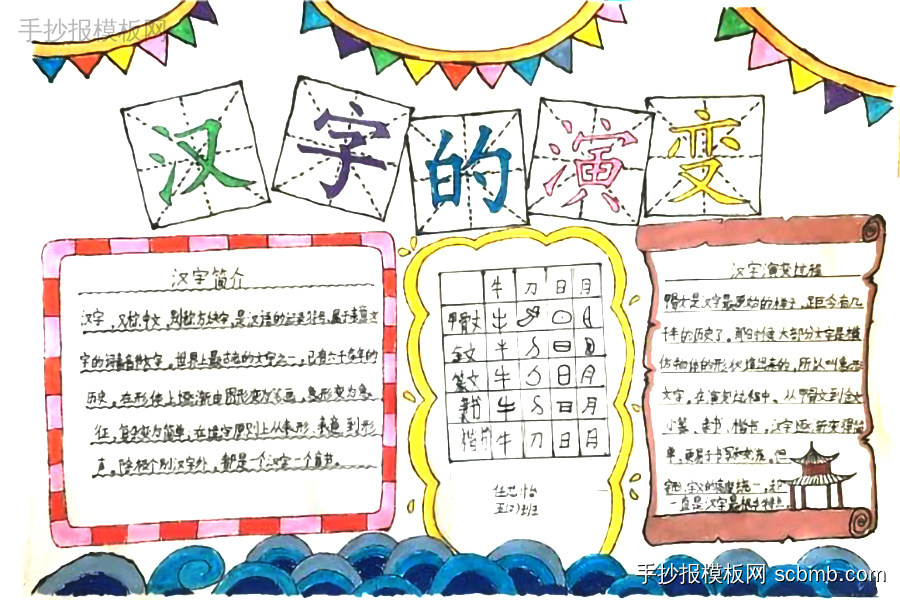 手抄报模板网
汉字的演变
汉字简介
汉字,又称中文,别称方块字,是汉语的记录符号,属于表意文
字的词素音节文字。世界上最古老的文字之一,已有六千多年的
历史。在形体上逐渐由图形变为笔画,象形变为象
征,复杂变为简单;在造字原则上从表形、表意到形
声。除极个别汉字外,都是一个汉字一个音节。
牛 刀 日 月
甲骨文
金文
篆文
隶书
楷书 牛 刀 日 月
任芯怡
五(2)班
汉字演变过程
甲骨文是汉字最原始的样子,距今有几
千年的历史了,那时候大部分文字是模
仿物体的形状描出来的,所以叫象形
文字。在演变过程中、从甲骨文到金文
小篆、隶书、楷书,汉字逐渐变得简
单,更易于书写和交流。但
一直是汉字最根本特点。
手抄报模板网 scbmb.com